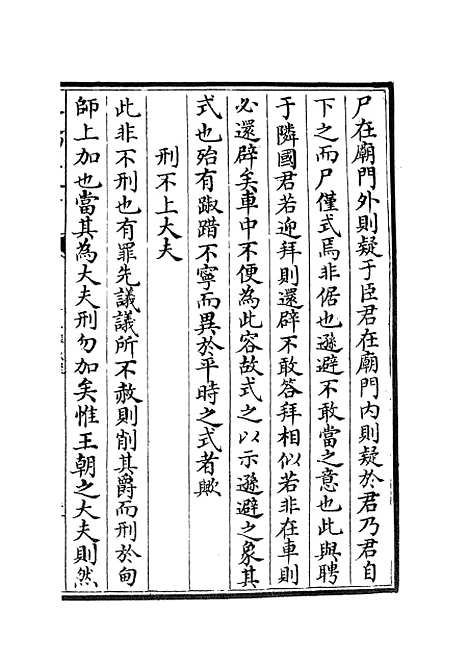 尸在廟門外則疑于臣君在廟門内則疑於君乃君自
下之而尸僅式焉非倨也遜避不敢當之意也此與聘
于隣國君若迎拜則還辟不敢答拜相似若非在車則
必還辟矣車中不便為此容故式之以示遜避之象其
式也殆有踧踖不寧而異於平時之式者歟
刑不上大夫
此非不刑也有罪先議議所不赦則削其爵而刑於甸
師上加也當其為大夫刑勿加矣惟王朝之大夫則然